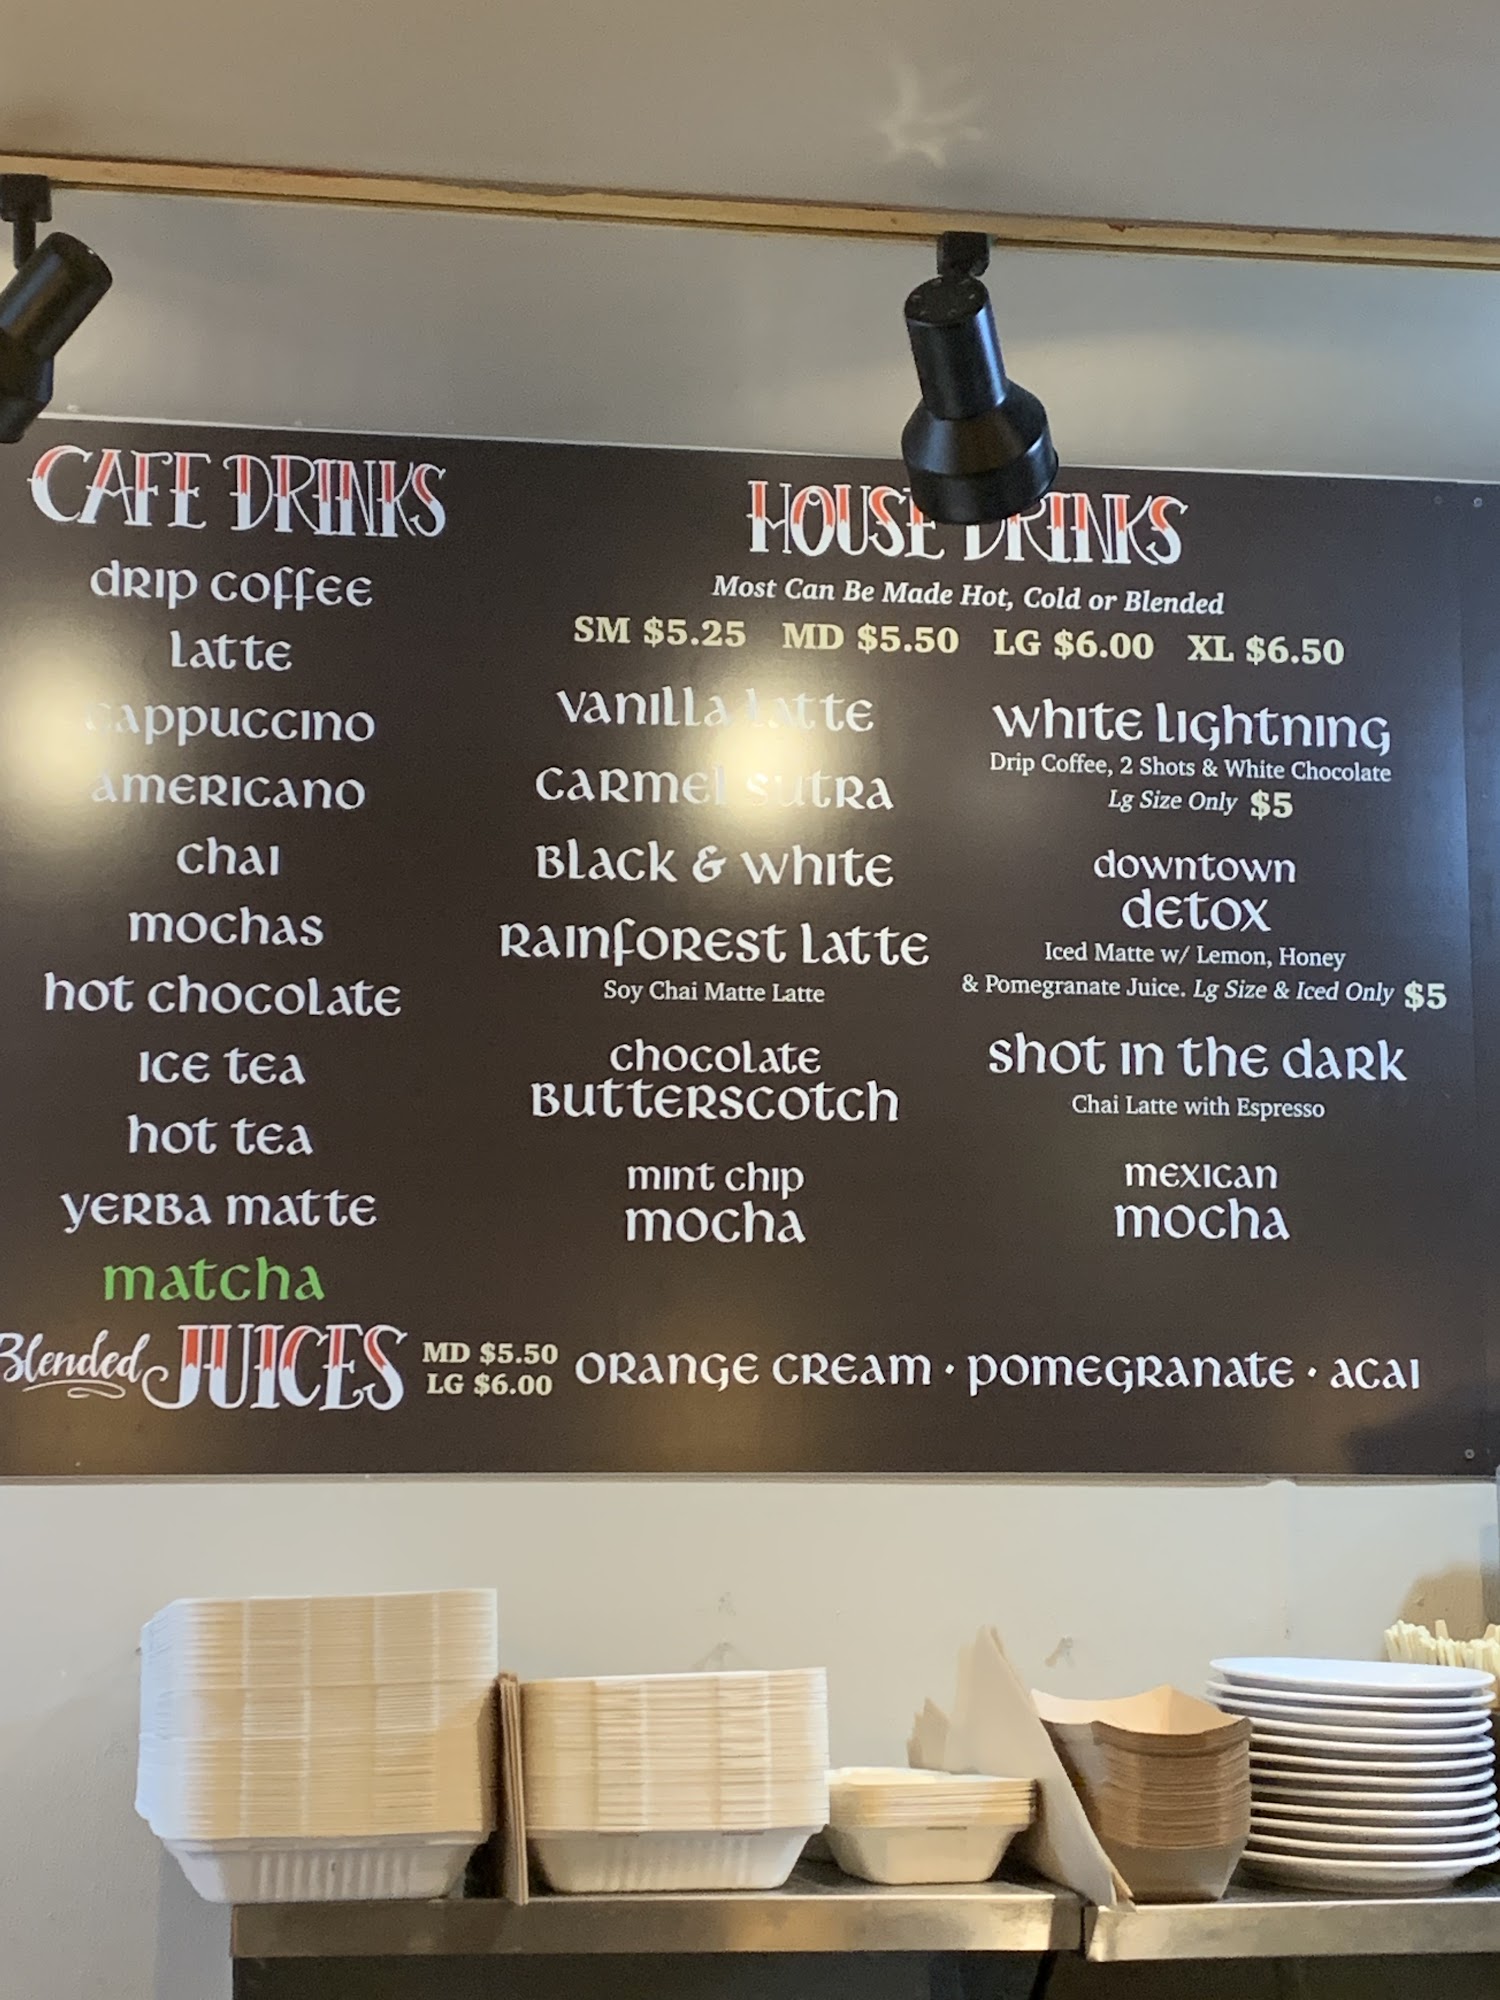 CAFE DRINKS
drip coffee
latte
cappuccino
americano
chai
mochas
hot chocolate
ice tea
hot tea
yerba matte
matcha
HOUSE DRINKS
Most Can Be Made Hot, Cold or Blended
SM $5.25 MD $5.50 LG $6.00 XL $6.50
vanilla latte
carmel sutra
black & white
rainforest latte
Soy Chai Matte Latte
chocolate
butterscotch
mint chip
mocha
white lightning
Drip Coffee, 2 Shots & White Chocolate
Lg Size Only $5
downtown
detox
Iced Matte w/ Lemon, Honey
& Pomegranate Juice. Lg Size & Iced Only $5
shot in the dark
Chai Latte with Espresso
mexican
mocha
Blended JUICES
MD $5.50
LG $6.00
orange cream · pomegranate · acai